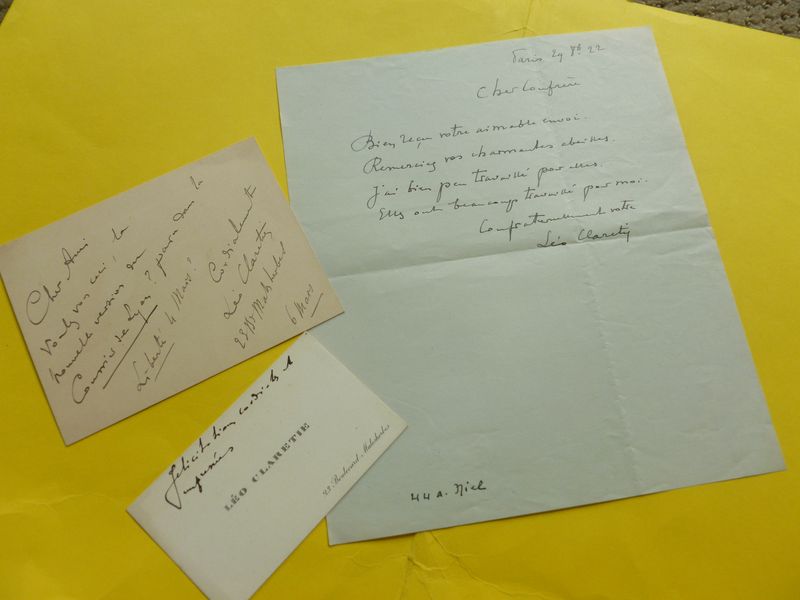 Cher Ami
Voulez vous ceci, la
nouvelle version du
Courrier de Lyon? paru dans la
Liberté 4 Mars?
Cordialement
Léo Claretie
23 Bd Malesherbes
6 Mars
Félicitations cordiales &
LÉO CLARETIE
23, Boulevard Malesherbes
Paris 29 8b 22
Cher Confrère
Bien reçu votre aimable envoi.
Remerciez vos charmantes abeilles.
J'ai bien peu travaillé pour elles.
Elles ont beaucoup travaillé pour moi.
Confraternellement votre
Léo Claretie
44 a. Niel